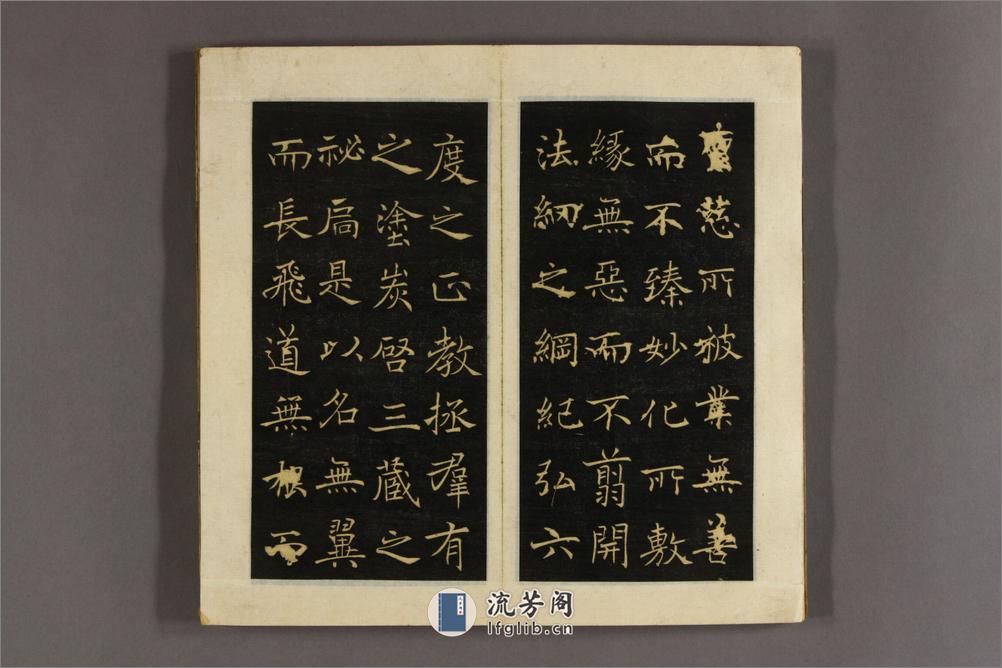 慈所被業無善
而不臻妙化所敷
緣無惡而不翦開
法網之綱紀弘六
度之正教拯羣有
之塗炭啓三藏之
祕扃是以名無翼
而長飛道無根而
流芳阁
lfglib.cn